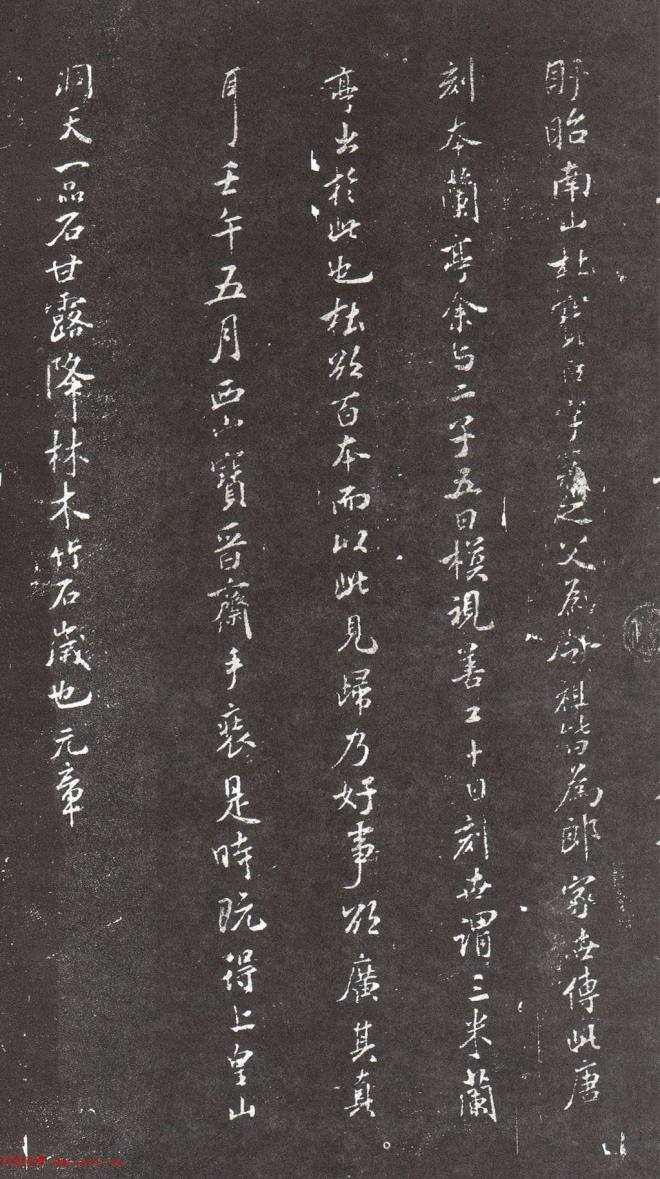 盱眙南山杜寶臣字之父為祖皆為郎家世傳此唐
刻本蘭亭余与二子五日模視善工十日刻世謂三米蘭
亭出於此也杜欲百本而以此見歸乃好事欲廣其真
耳壬午五月西山寶晉齋手裝是時既得上皇山
洞天一品石甘露降林木竹石歲也元章